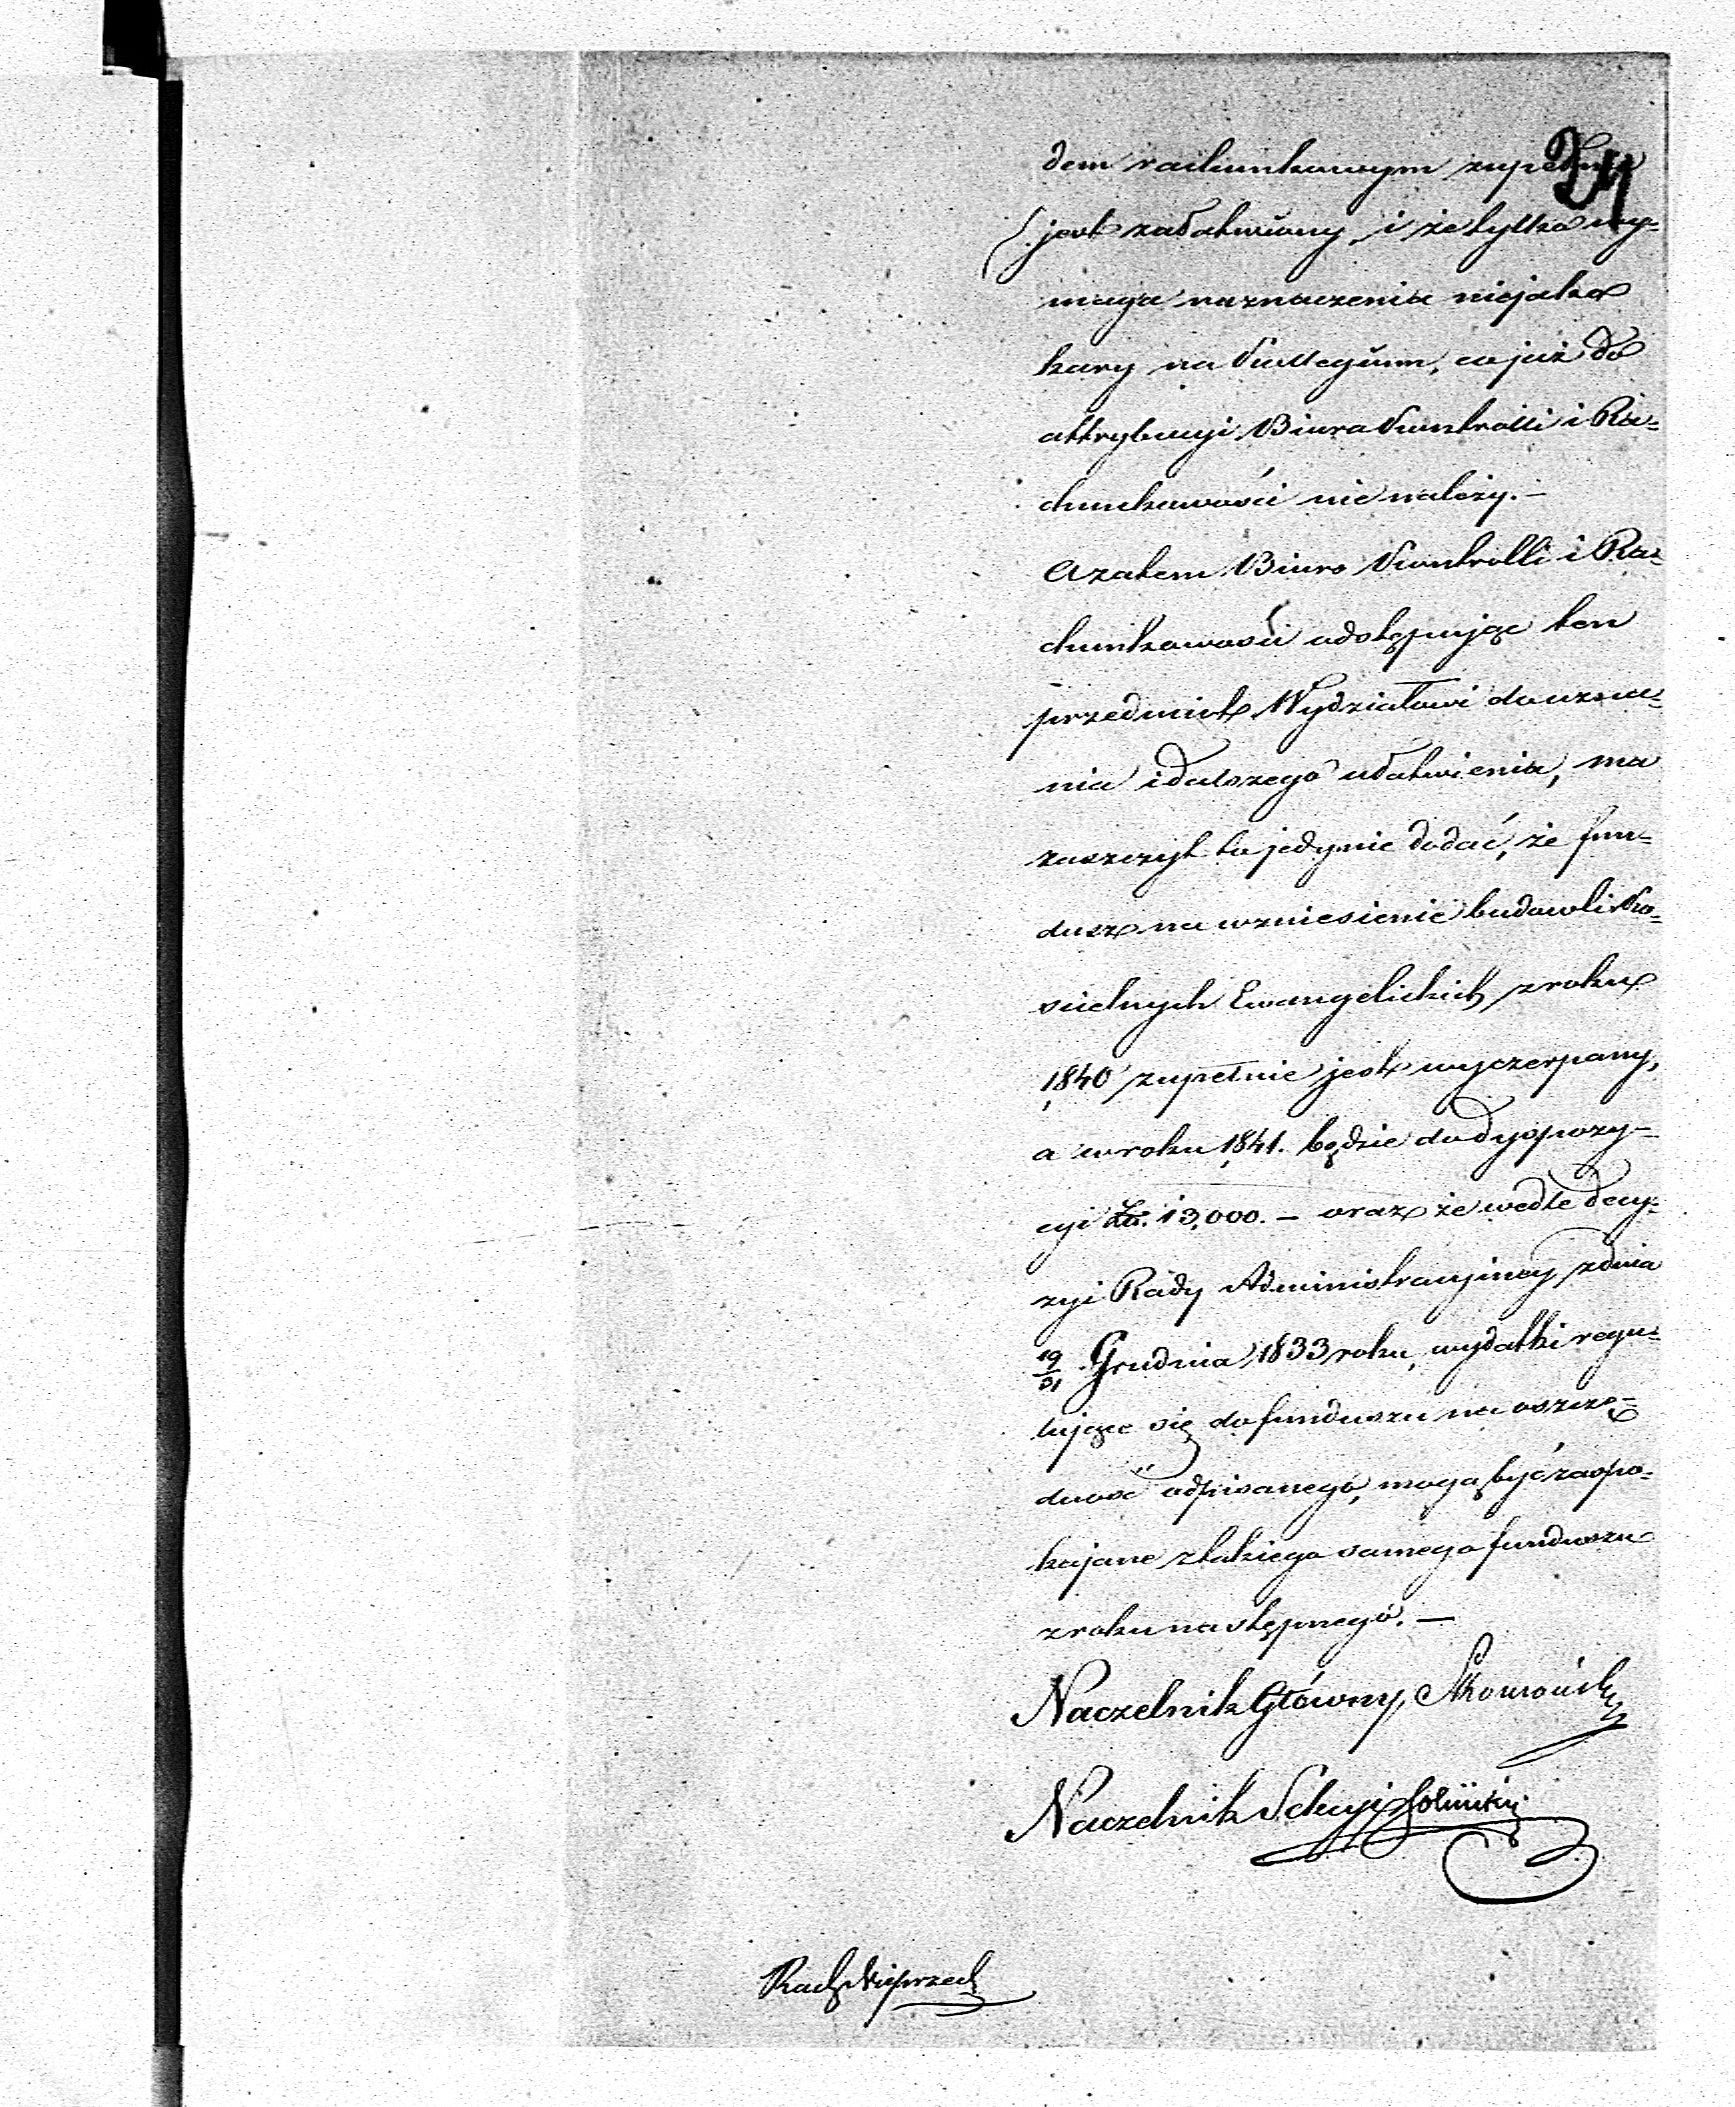 24
dem rachunkowym zupełnie
jest załatwiony, i że tylko wy-
maga naznaczenia niejako
kary na Kollegium, co już do
attrybucyi Biura Kontrolli i Ra-
chunkowości nie należy. –
A zatem Biuro Kontrolli i Ra-
chunkowości odstępując ten
przedmiot Wydziałowi do uzna-
nia i dalszego ułatwienia, ma
zaszczyt tu jedynie dodać, że fun-
dusz na wzniesienie budowli Ko-
ścielnych Ewangelickich z roku
1840 zupełnie jest wyczerpany,
a w roku 1841. będzie do dyspozy-
cyi Zł. 13,000. – oraz że wedle decy-
zyi Rady Administracyjney z dnia
19/31 Grudnia 1833 roku, wydatki regu-
lujące się do funduszu na oszczę-
dność odpisanego, mogą być zaspo-
kajane z takiego samego funduszu
z roku następnego. –
Naczelnik Główny
Naczelnik Sekcyi
Rach.